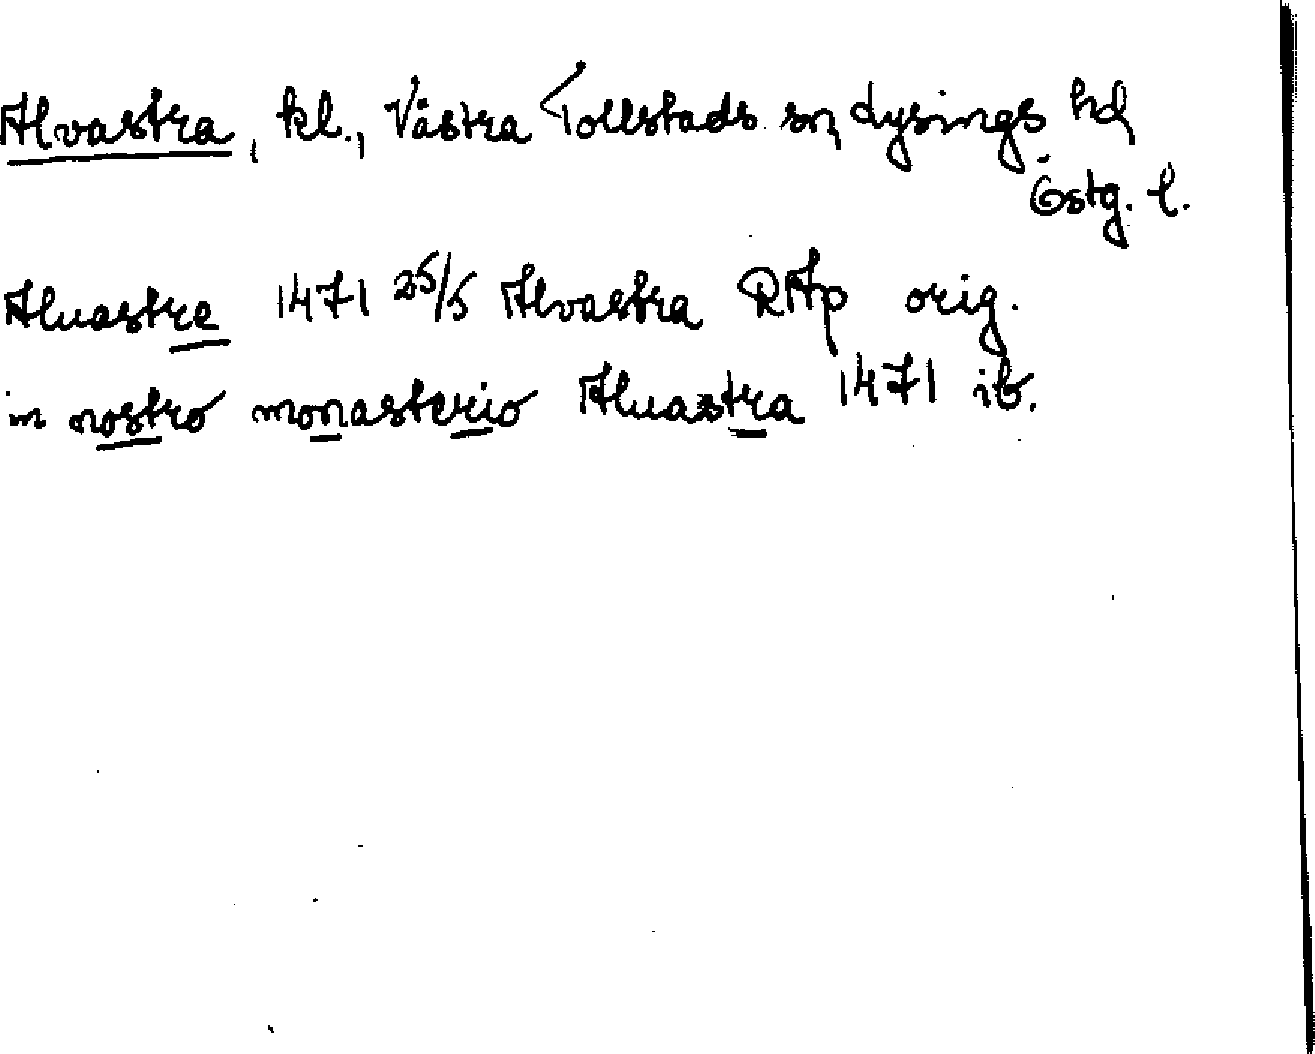 Alvastra, kl., Västra Tollstads sn, Lysings hd,
Östg. l.
Aluastre 1471 25/5 Alvastra RAp orig.
in nostro monasterio Aluastra 1471 ib.